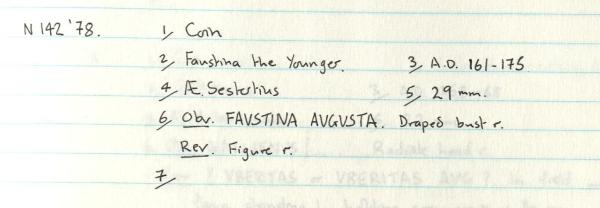 N 142 '78. 1, Coin
2, Faustina the Younger. 3, A.D. 161-175.
4, Æ. Sestertius 5, 29 mm.
6, Obv. FAVSTINA AVGVSTA. Draped bust r.
Rev. Figure r.
7,